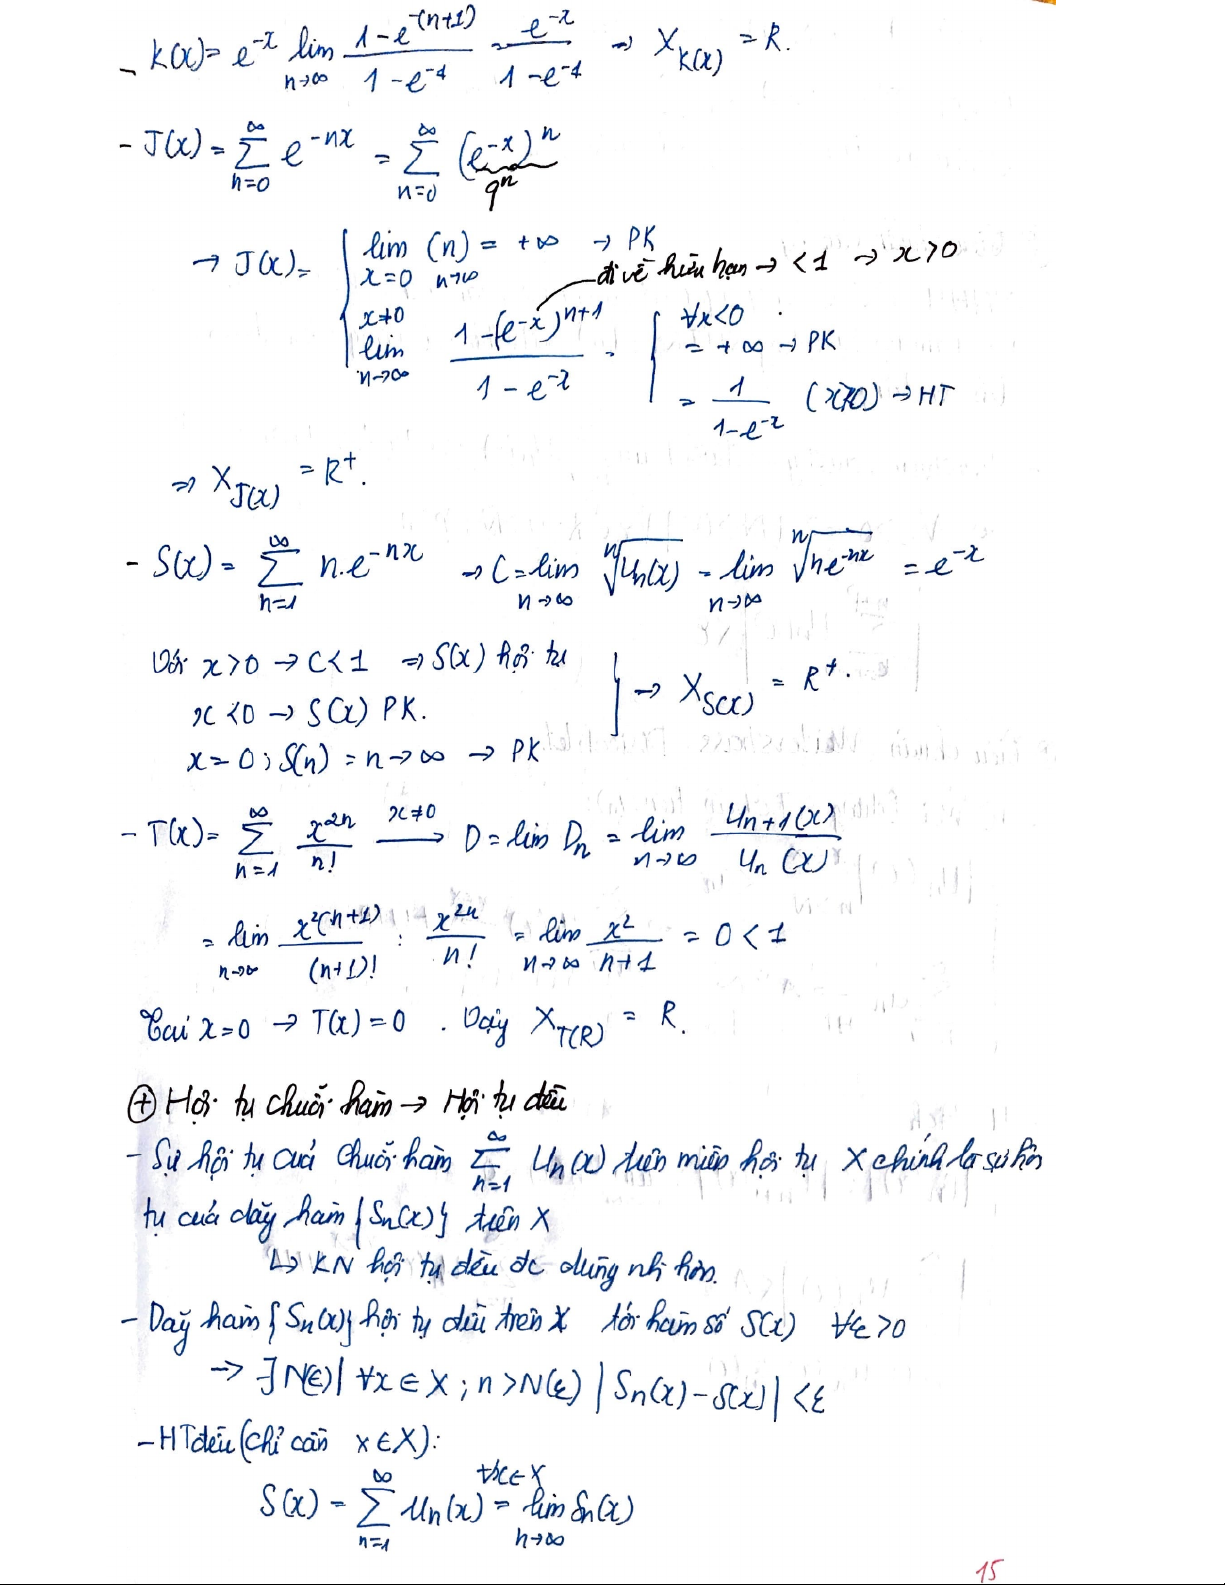 - K(x) = e^{-x} lim_{n→∞} \frac{1-e^{-(n+1)}}{1-e^{-1}} = \frac{e^{-x}}{1-e^{-1}} ⇒ X_{K(x)} = R.
- J(x) = \sum_{n=0}^{∞} e^{-nx} = \sum_{n=0}^{∞} (e^{-x})^n
q^n
→ J(x) = { lim_{n→∞} (n) = +∞ → PK
x=0
đi về hữu hạn → <1 → x>0
x≠0
lim_{n→∞} \frac{1-(e^{-x})^{n+1}}{1-e^{-x}} = { ∀x<0
= +∞ → PK
= \frac{1}{1-e^{-x}} (x>0) → HT
⇒ X_{J(x)} = R^+.
- S(x) = \sum_{n=1}^{∞} n.e^{-nx} → C = lim_{n→∞} \sqrt[n]{U_n(x)} = lim_{n→∞} \sqrt[n]{ne^{-nx}} = e^{-x}
Với x>0 → C<1 ⇒ S(x) hội tụ
x<0 → S(x) PK. } → X_{S(x)} = R^+.
x=0; S(n) = n→∞ → PK
- T(x) = \sum_{n=1}^{∞} \frac{x^{2n}}{n!} \xrightarrow{x≠0} D = lim D_n = lim_{n→∞} \frac{U_{n+1}(x)}{U_n(x)}
= lim_{n→∞} \frac{x^{2(n+1)}}{(n+1)!} : \frac{x^{2n}}{n!} = lim_{n→∞} \frac{x^2}{n+1} = 0 < 1
Tại x=0 → T(x)=0 . Vậy X_{T(R)} = R.
⊕ Hội tụ chuỗi hàm → Hội tụ đều
- Sự hội tụ của chuỗi hàm \sum_{n=1}^{∞} U_n(x) trên miền hội tụ X chính là sự hội
tụ của dãy hàm {S_n(x)} trên X
↳ KN hội tụ đều đc dùng nh hơn.
- Dãy hàm {S_n(x)} hội tụ đều trên X tới hàm số S(x) ∀ε>0
→ ∃N(ε) | ∀x∈X ; n>N(ε) |S_n(x)-S(x)| <ε
- HT đều (chỉ cần x∈X):
S(x) = \sum_{n=1}^{∞} U_n(x) \overset{∀x∈X}{=} lim_{n→∞} S_n(x)
15